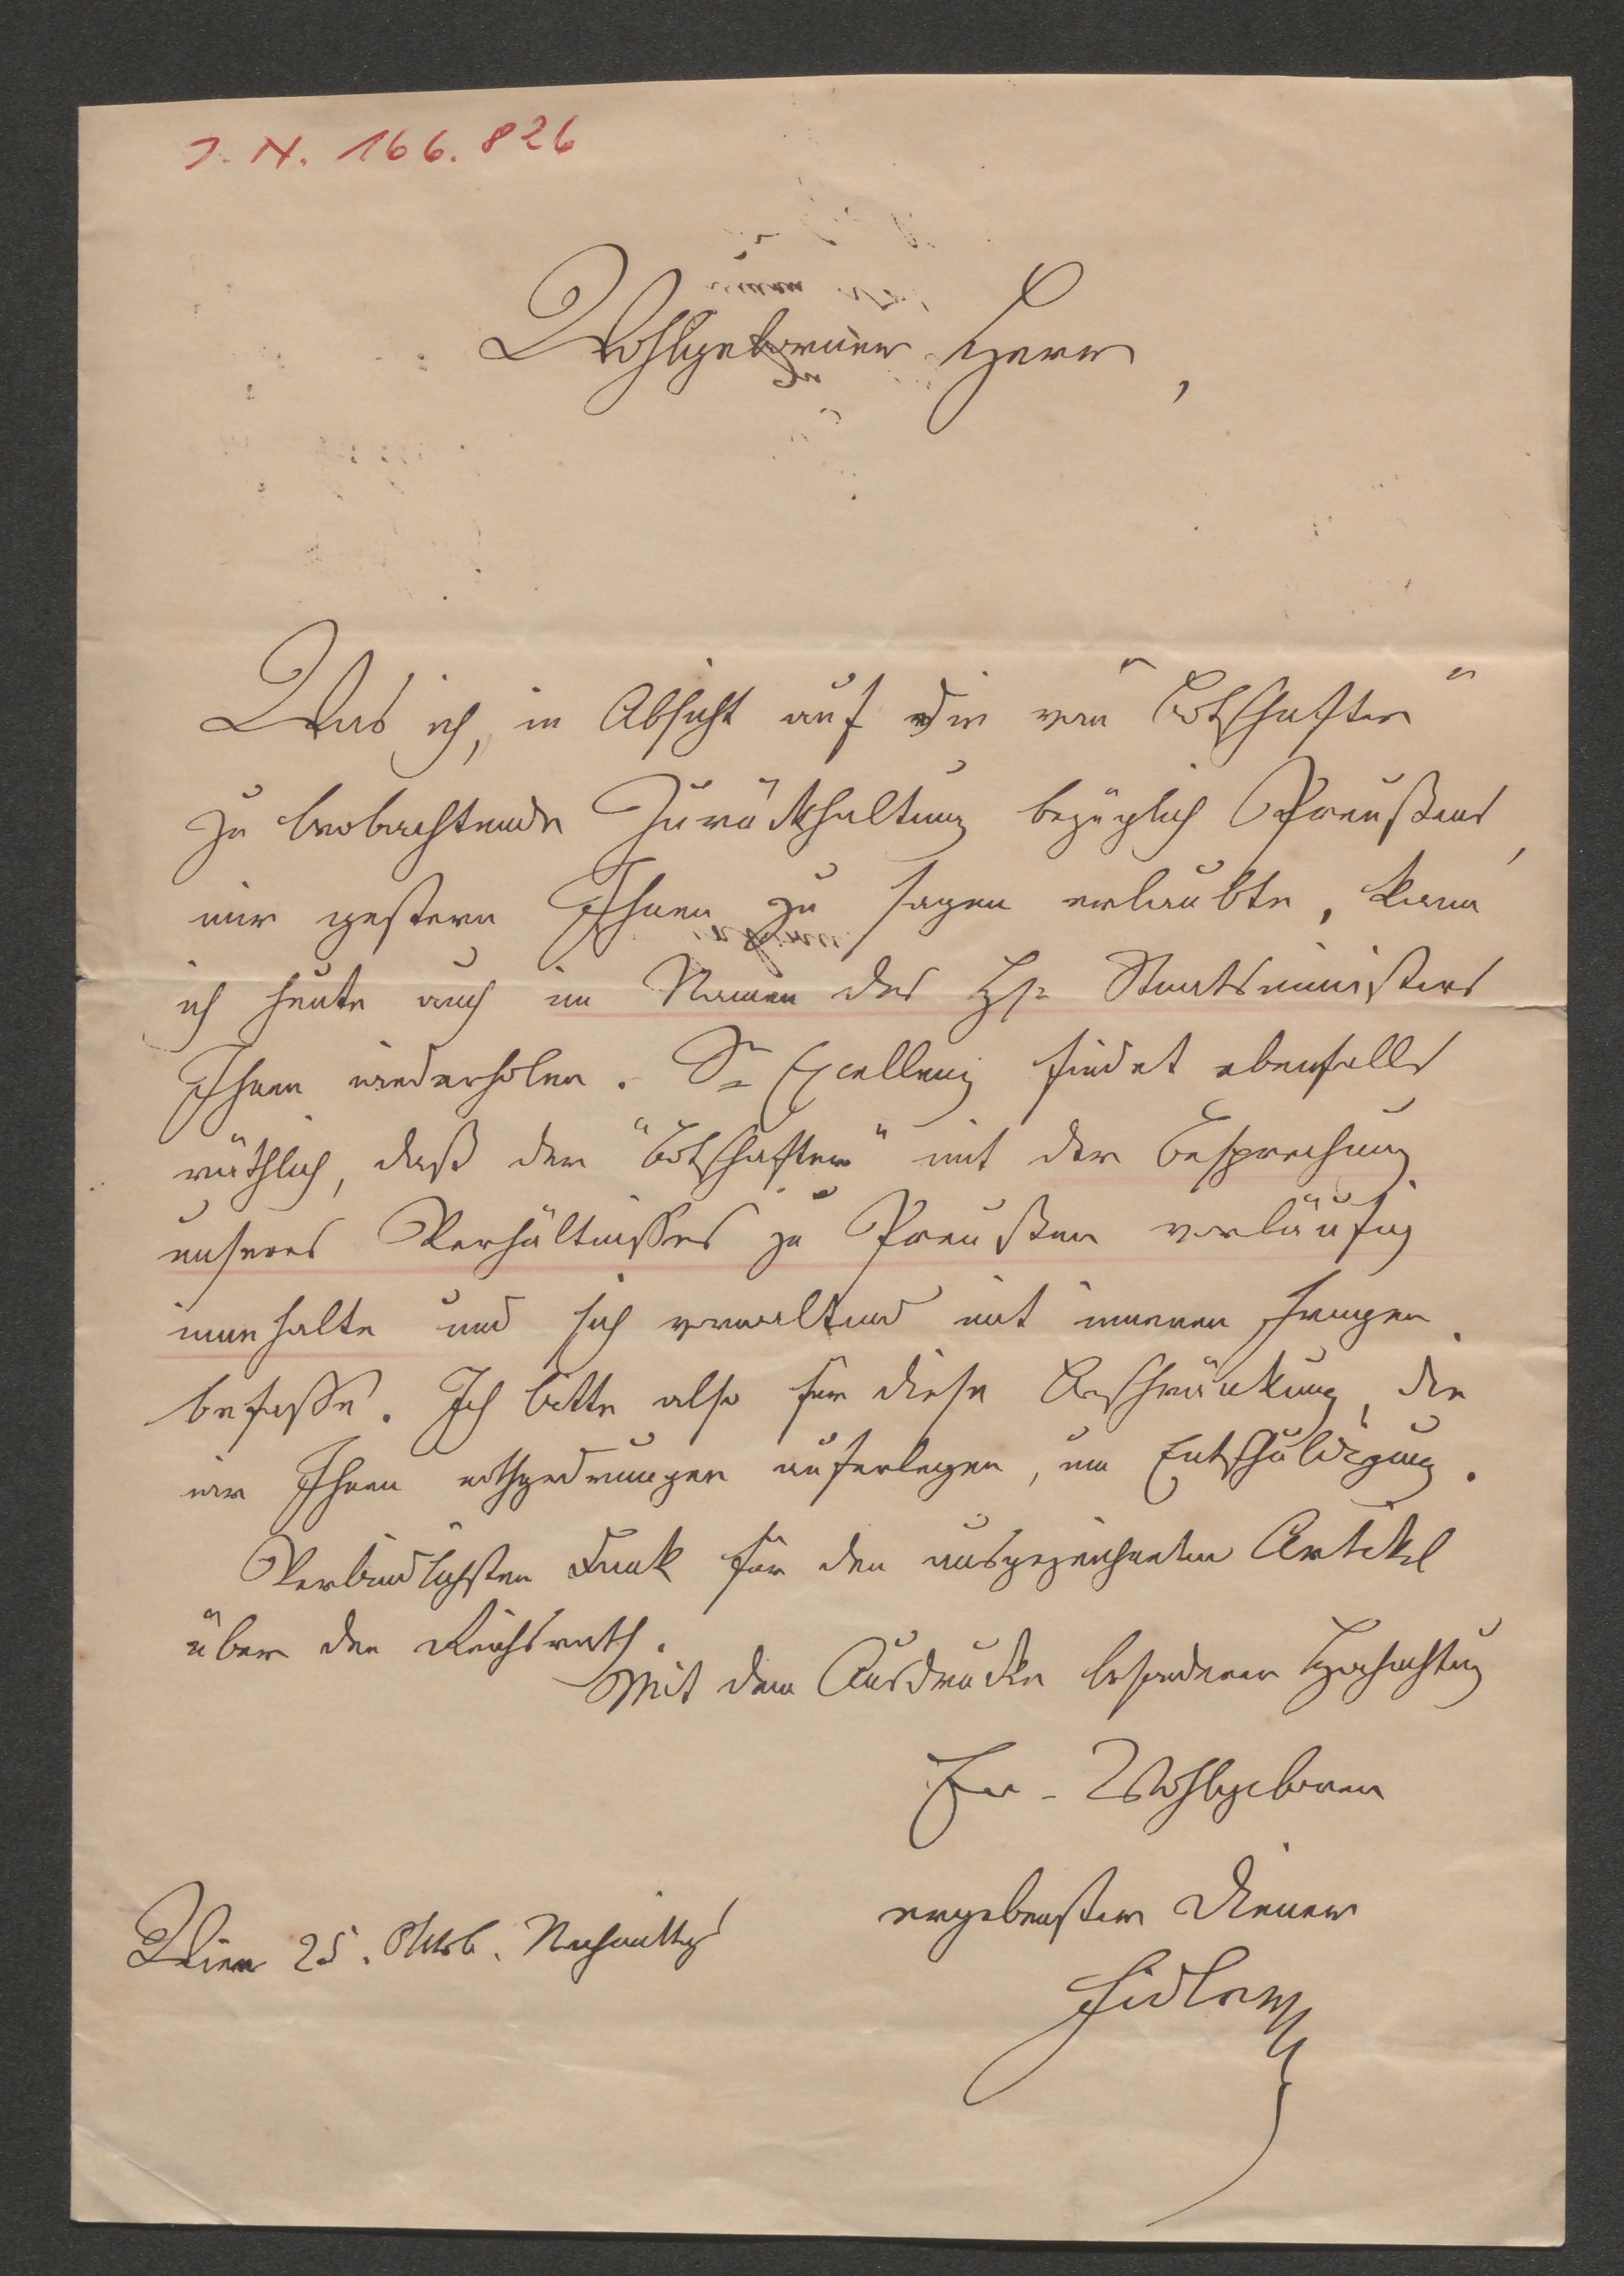 J. N. 166.826
Wohlgeborner Herr,
Was ich, in Absicht auf die vom "Botschafter"
zu beobachtende Zurückhaltung bezüglich Preußens,
mir gestern Ihnen zu sagen erlaubte, kann
ich heute auch im Namen des H. Staatsministers
Ihnen wiederholen. Se Excellenz findet ebenfalls
räthlich, daß der "Botschafter" mit der Besprechung
unseres Verhältnisses zu Preußen vorläufig
inne halte und sich vorwaltend mit inneren Fragen
befasse. Ich bitte also für diese Beschränkung, die
wir Ihnen nothgedrungen auferlegen, um Entschuldigung.
Verbindlichsten Dank für den ausgezeichneten Artikel
über den Reichsrath.
Mit dem Ausdrucke besonderer Hochachtung
Ew. Wohlgeboren
ergebenster Diener
Fidler
Wien 25. Oktob. Nachmittgs